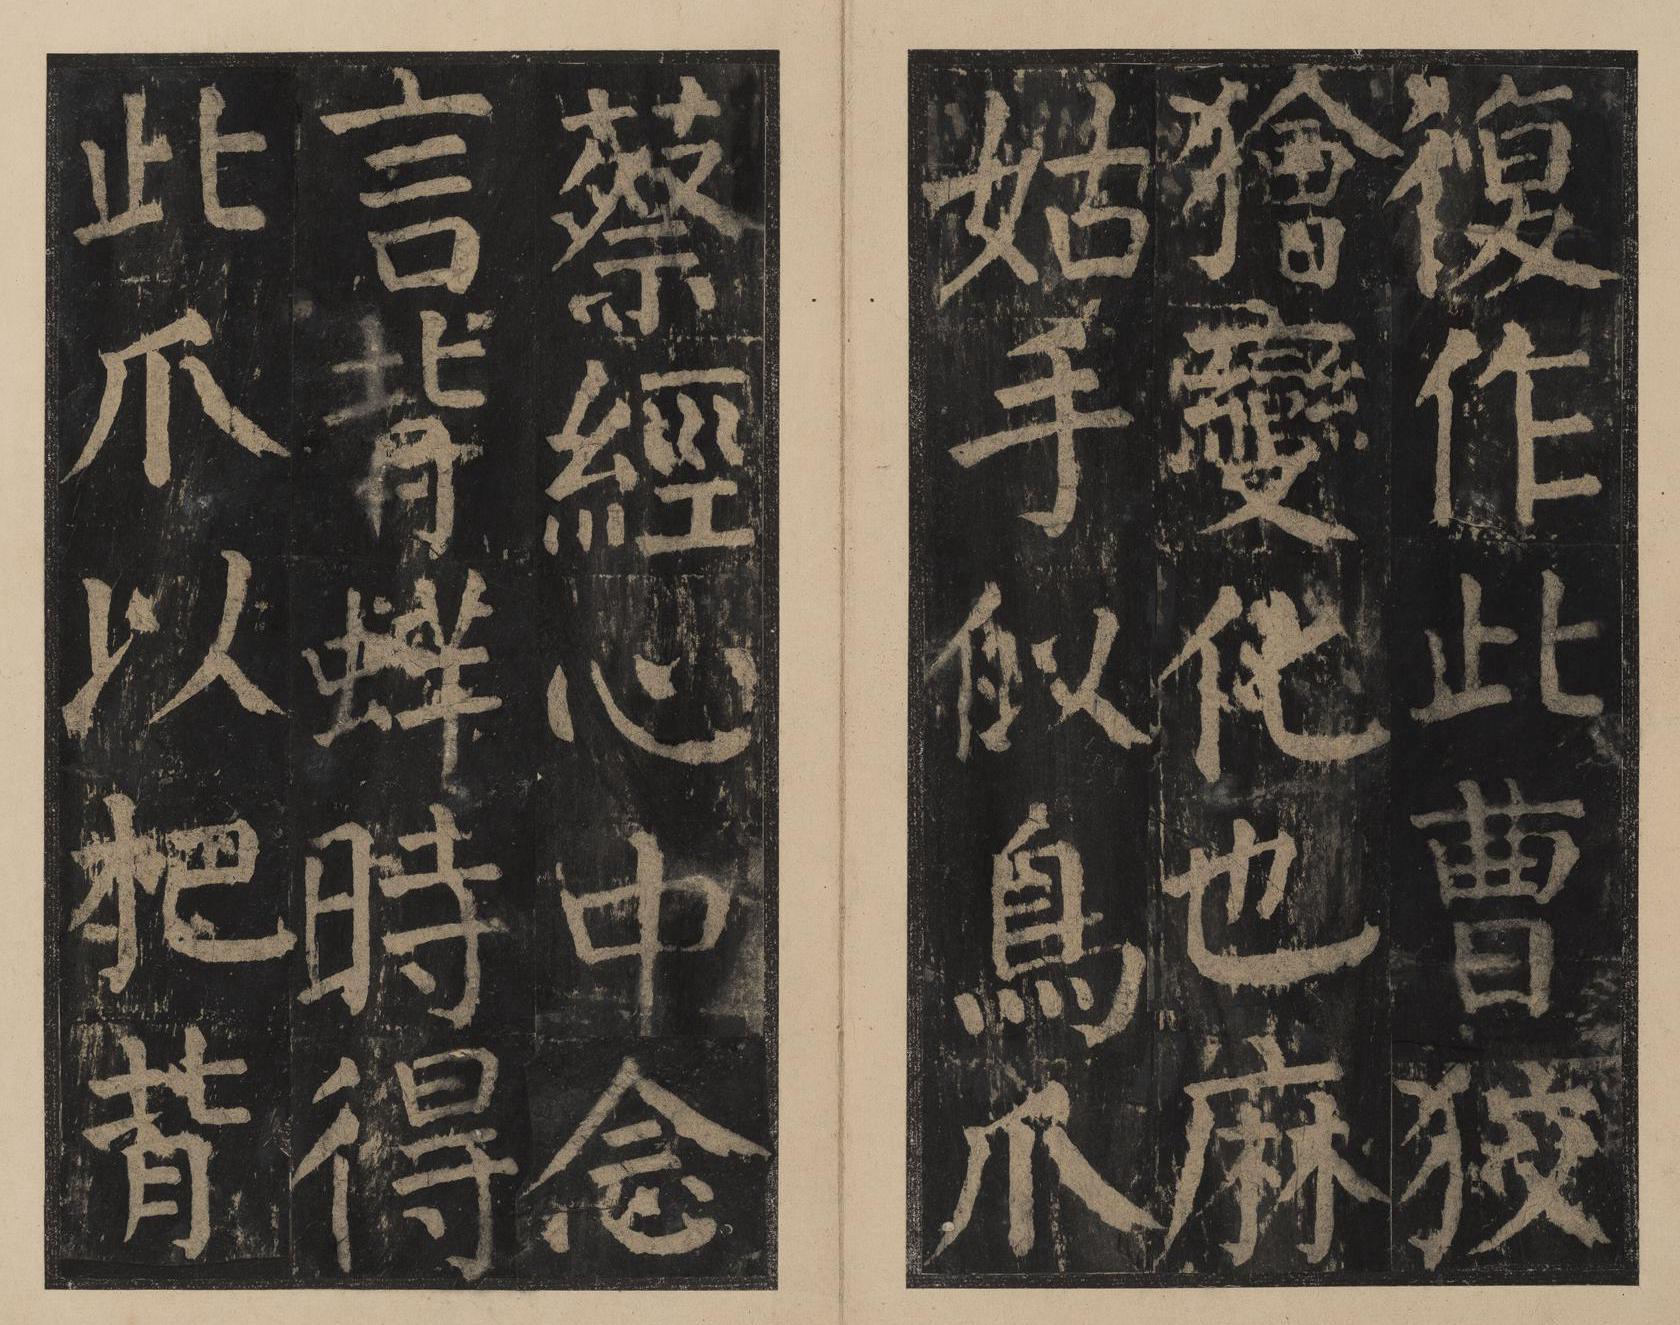 復作此曹狡
獪變化也麻
姑手似鳥爪
蔡經心中念
言背蛘時得
此爪以把背